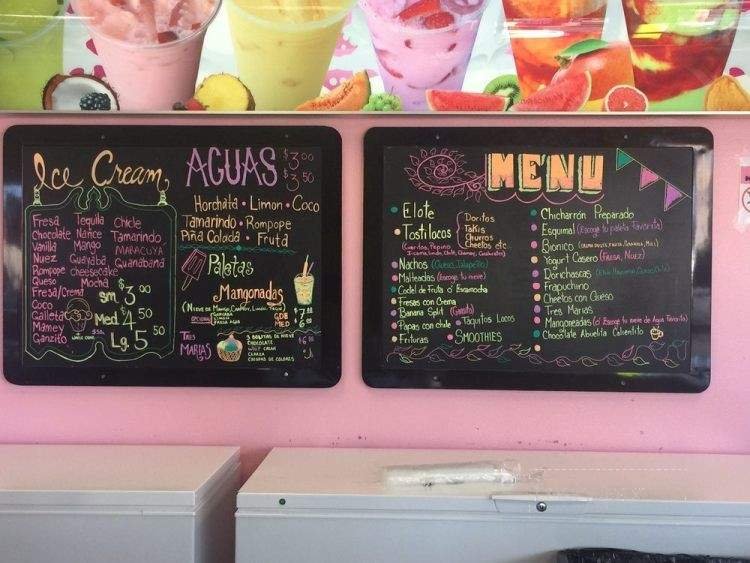 Ice Cream
Fresa Tequila Chicle
Chocolate Nance Tamarindo
Vanilla Mango MARACUYA
Nuez Guayaba Guanabana
Rompope cheesecake
Queso Mocha
Fresa/Crema
Coco
Galleta
Mamey
Ganzito
Sm. 3 00
Med. 4 50
Lg. 5 50
AGUAS $3 00
$3 50
Horchata • Limon • Coco
Tamarindo • Rompope
Piña Colada • Fruta
Paletas
Mangonadas
GDE $7
MED $6
TRES MARIAS
3 BOLITAS DE NIEVE
CHOCOLATE
WHIP CREAM
CEREZA
CHISPAS DE COLORES
MENU
Elote
Tostilocos
Doritos
Takis
Churros
Cheetos etc.
Nachos (Queso, Jalapeño)
Malteadas (Escoge tu nieve)
Coctel de Fruta o Escamocha
Fresas con Crema
Banana Split
Papas con chile
Taquitos Locos
Frituras
SMOOTHIES
Chicharrón Preparado
Esquimal (Escoge tu paleta Favorita)
Bionico
Yogurt Casero (FRESA, NUEZ)
Dorichascas
Frapuchino
Cheetos con Queso
Tres Marias
Mangoneadas (c/ Escoge tu nieve de Agua Favorita)
Chocolate Abuelita Calientito